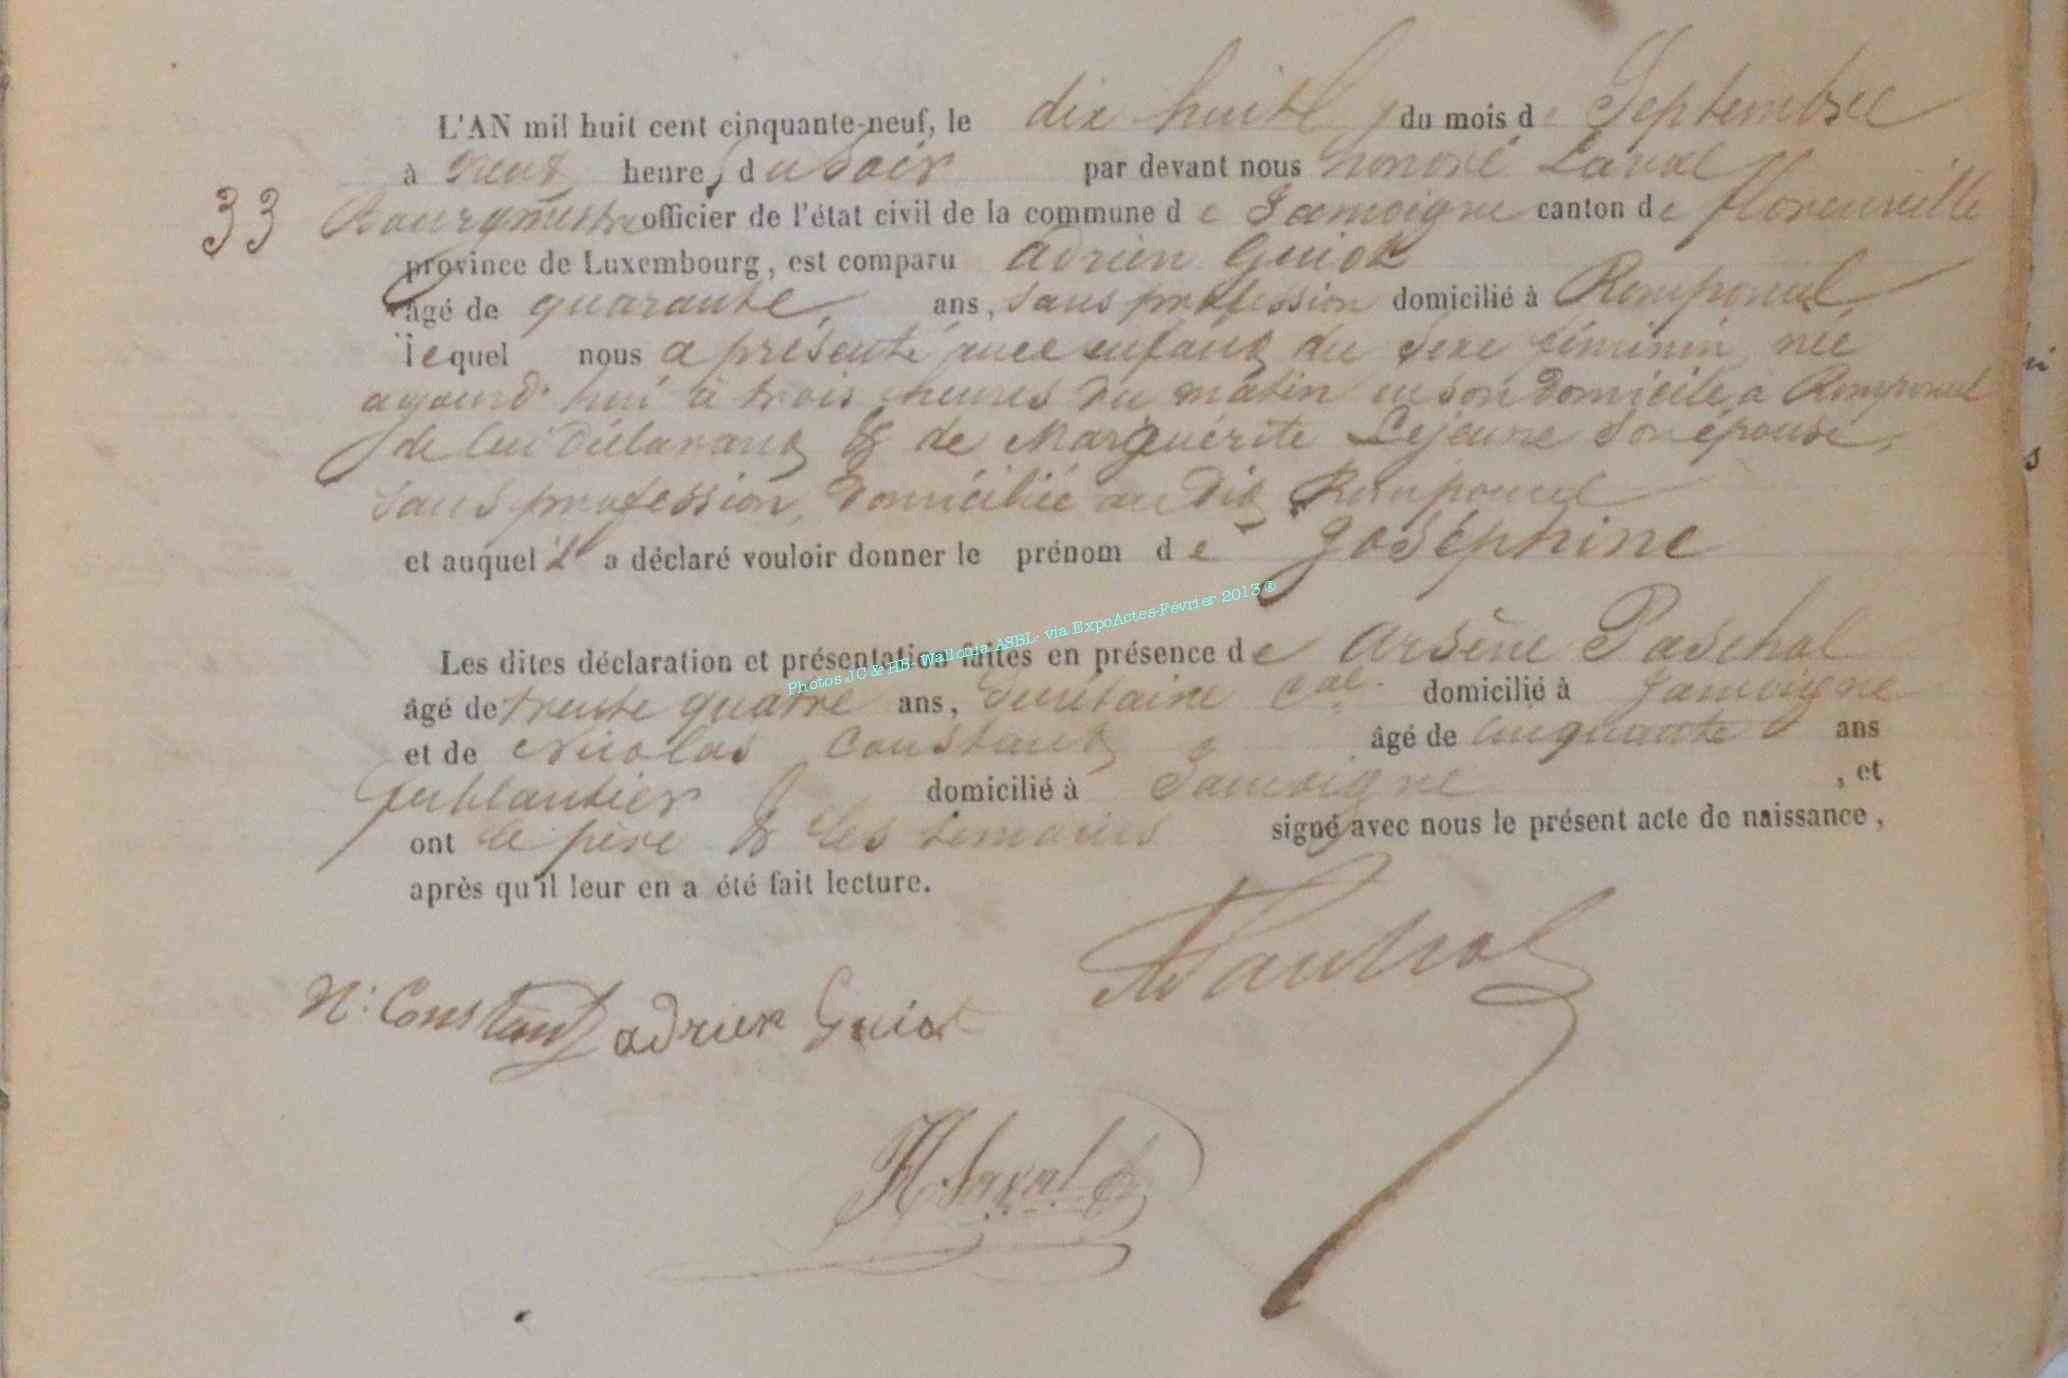 L'AN mil huit cent cinquante-neuf, le dix huit du mois de Septembre
à heures du Soir par devant nous honoré Laval
33 Bourgmestre officier de l'état civil de la commune de Jamoigne canton de florenville
province de Luxembourg, est comparu adrien Guiot
âgé de quarante ans, sans profession domicilié à Romponcel
lequel nous a présenté une enfant du sexe féminin née
aujourd'hui à trois heures du matin en son domicile a Romponcel
de lui déclarant & de Marguérite Lejeune son épouse,
sans profession, domiciliée au dit Romponcel
et auquel il a déclaré vouloir donner le prénom de Joséphine
Les dites déclaration et présentation faites en présence de Arsène Paschal
Photos JC & HB- Wallonia ASBL- via ExpoActes-Février 2013 ©
âgé de trente quatre ans, Secrétaire Cal. domicilié à Jamoigne
et de Nicolas Constant âgé de cinquante ans
ferblantier domicilié à Jamoigne, et
ont le père & les témoins signé avec nous le présent acte de naissance,
après qu'il leur en a été fait lecture.
N: Constant adrien Guiot Paschal
H. Laval